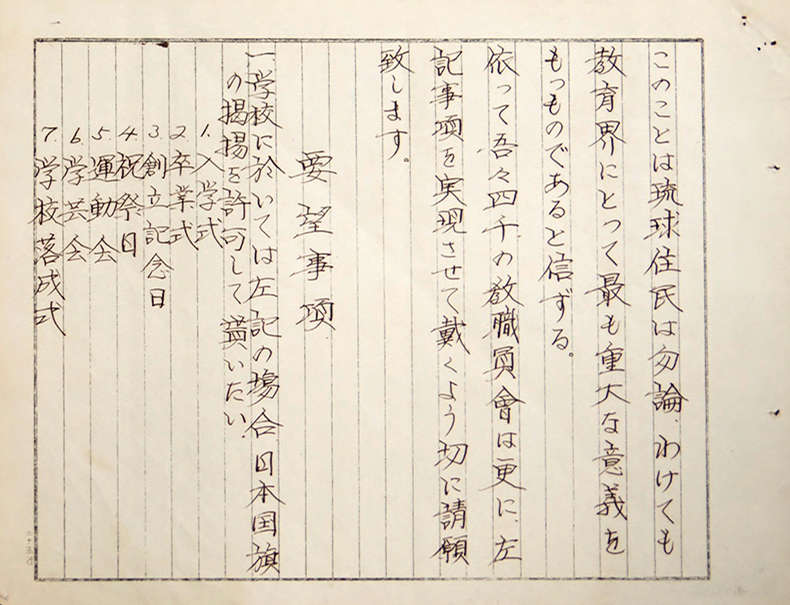 このことは琉球住民は勿論、わけても
教育界にとって最も重大な意義を
もつものであると信ずる。
依って吾々四千の教職員會は更に、左
記事項を実現させて戴くよう切に請願
致します。
要望事項
一、学校に於いては左記の場合日本国旗
の掲揚を許可して貰いたい。
1. 入学式
2. 卒業式
3. 創立記念日
4. 祝祭日
5. 運動会
6. 学芸会
7. 学校落成式